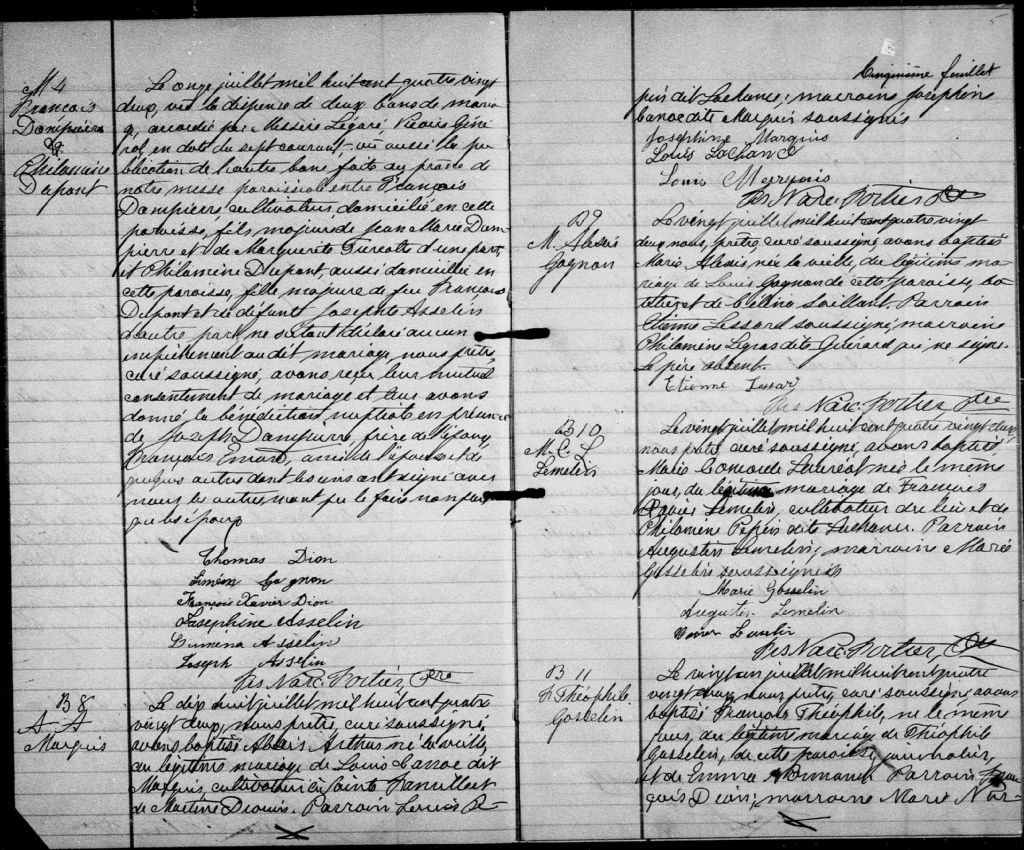 M 4
François
Dampierre
&
Philomène
Dupont
Le onze juillet mil huit cent quatre vingt
deux, vu la dispense de deux bans de maria
ge, accordée par Messire Légaré, Vicaire Géné
ral, en date du sept courant vu aussi la pu
blication de l'autre ban faite au prône de
notre messe paroissiale entre François
Dampierre, cultivateur, domicilié en cette
paroisse, fils majeur de Jean Marie Dam
pierre et de Marguerite Turcotte d'une part,
et Philomène Dupont, aussi domiciliée en
cette paroisse, fille majeure de feu François
Dupont et de défunte Josephte Asselin
d'autre part, ne s'étant déclaré aucun
empêchement au dit mariage, nous prêtre,
curé soussigné, avons reçu leur mutuel
consentement de mariage et leur avons
donné la bénédiction nuptiale en présence
de Joseph Dampierre, frère de l'époux
François Emond, ami de l'épouse et de
quelques autres dont les uns ont signé avec
nous les autres n'ont pu le faire non plus
que les époux
Thomas Dion
Siméon Gagnon
François Xavier Dion
Joséphine Asselin
Luména Asselin
Joseph Asselin
Frs Narc. Fortier Ptre
B 8
A A
Marquis
Le dix huit juillet mil huit cent quatre
vingt deux, nous prêtre, curé soussigné,
avons baptisé Alexis Arthur né la veille,
du légitime mariage de Louis Canac dit
Marquis, cultivateur de Sainte Famille et
de Martine Drouin. Parrain Louis P-
5
Cinquième feuillet
pin dit Lachance; marraine Joséphine
Canac dite Marquis soussignés
Joséphine Marquis
Louis Lachance
Louis Marquis
Frs Narc. Fortier Ptre
B 9
M. Alexis
Gagnon
Le vingt juillet mil huit cent quatre vingt
deux nous, prêtre curé soussigné avons baptisé
Marie Alexis née la veille, du légitime ma-
riage de Louis Gagnon de cette paroisse,
et de Célina Vaillant. Parrain
Etienne Lessard soussigné, marraine
Philomène Legros dite Gérard qui ne signe.
Le père absent.
Etienne Lessar
Frs Narc. Fortier Ptre
B 10
M. C. L
Lemelin
Le vingt juillet mil huit cent quatre vingt deux,
nous prêtre, curé soussigné, avons baptisé
Marie née le même
jour, du légitime mariage de François
Xavier Lemelin, cultivateur du lieu et de
Philomène Pepin dite Lachance. Parrain
Augustin Lemelin, marraine Marie
Gosselin soussignés
Marie Gosselin
Augustin Lemelin
Frs Narc. Fortier Ptre
B 11
F. Théophile
Gosselin
Le vingt un juillet mil huit cent quatre
vingt deux, nous prêtre, curé soussigné avons
baptisé François Théophile, né le même
jour, du légitime mariage de Théophile
Gosselin, de cette paroisse, journalier,
et de Emma Normand Parrain Fran
çois Dion; marraine Marie Nor-